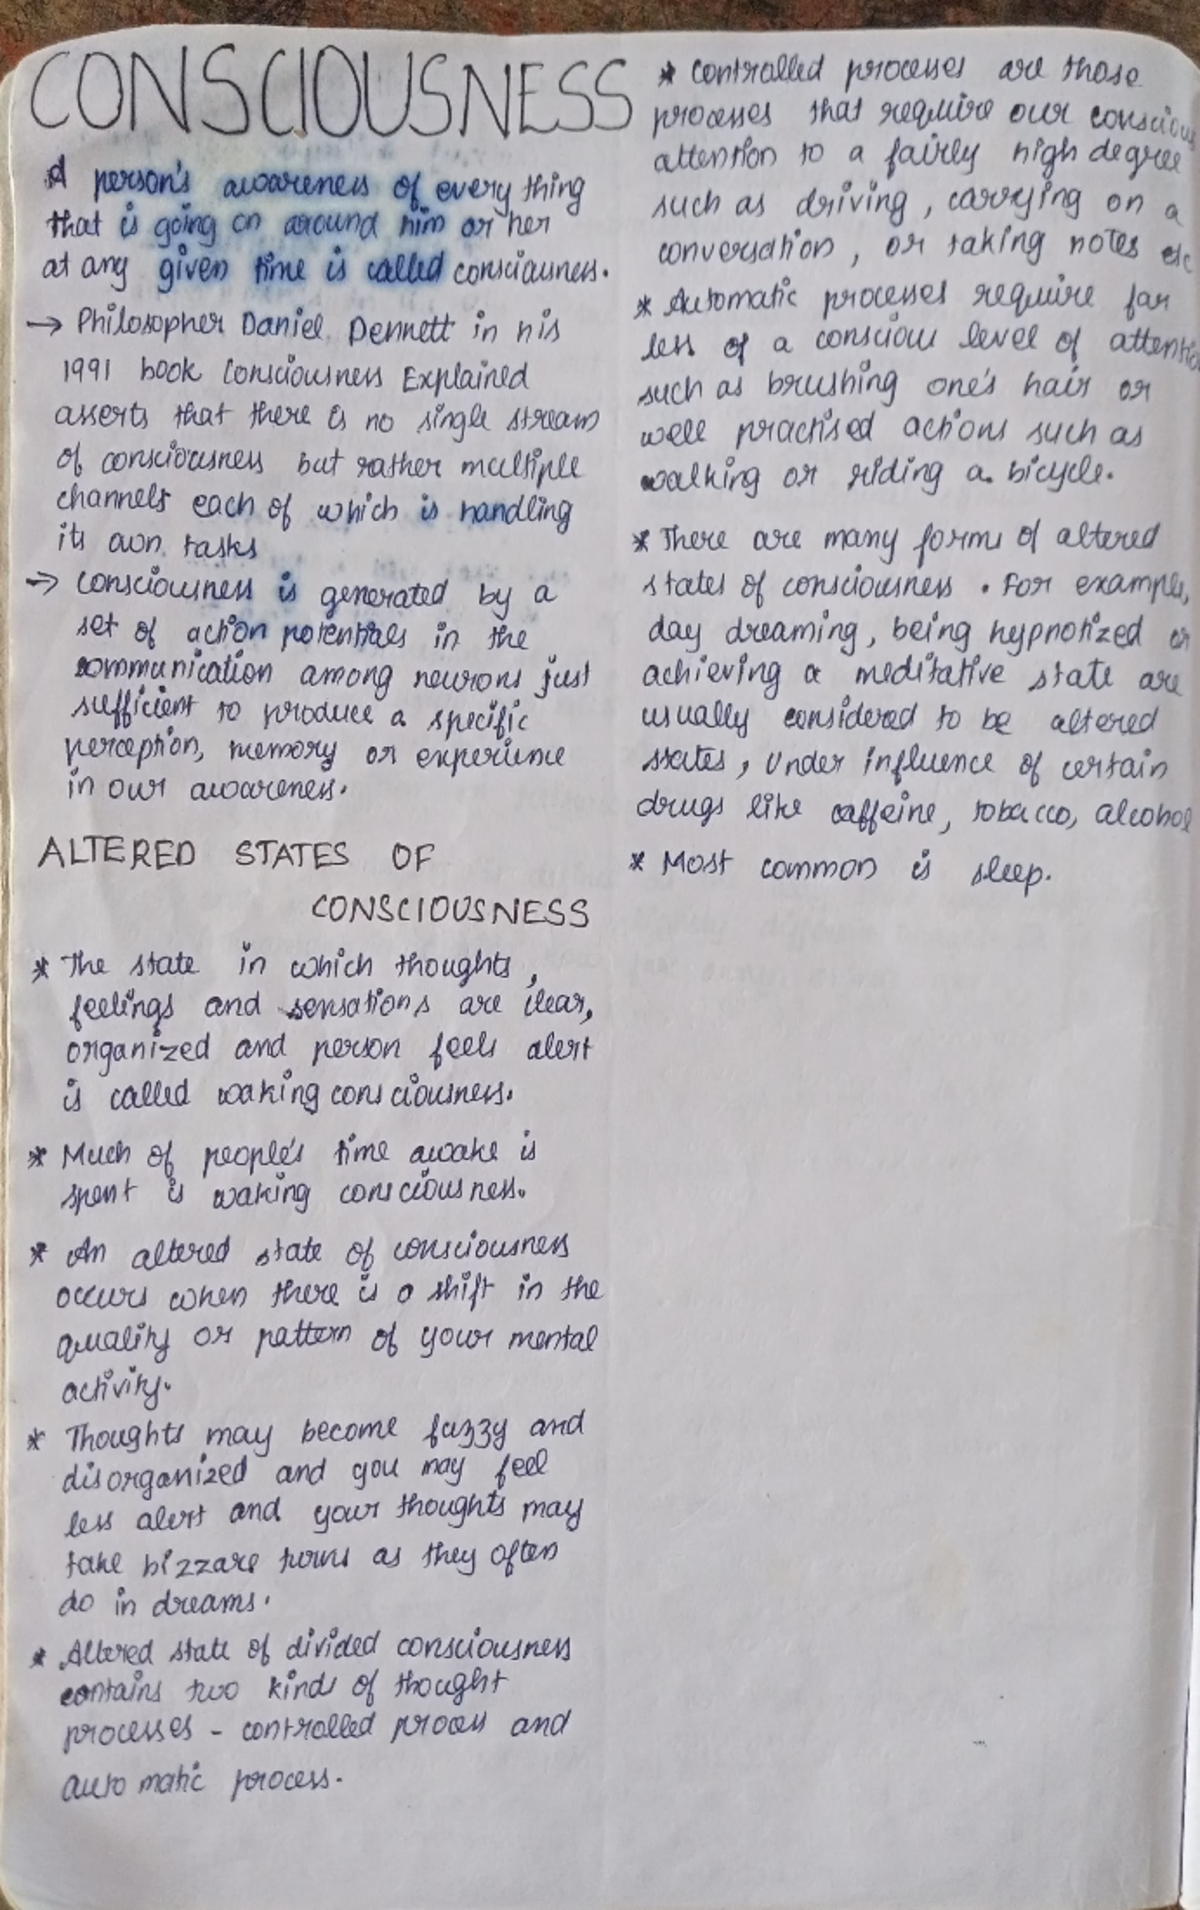 CONSCIOUSNESS
A person's awareness of every thing
that is going on around him or her
at any given time is called consciousness.
→ Philosopher Daniel Dennett in his
1991 book Consciousness Explained
asserts that there is no single stream
of consciousness but rather multiple
channels each of which is handling
its own tasks
→ Consciousness is generated by a
set of action potentials in the
communication among neurons just
sufficient to produce a specific
perception, memory or experience
in our awareness.
ALTERED STATES OF
CONSCIOUSNESS
* The state in which thoughts,
feelings and sensations are clear,
organized and person feels alert
is called waking consciousness.
* Much of people's time awake is
spent is waking consciousness.
* An altered state of consciousness
occurs when there is a shift in the
quality or pattern of your mental
activity.
* Thoughts may become fuzzy and
disorganized and you may feel
less alert and your thoughts may
take bizzare turns as they often
do in dreams.
* Altered state of divided consciousness
contains two kinds of thought
processes - controlled process and
automatic process.
* Controlled processes are those
processes that require our conscious
attention to a fairly high degree
such as driving, carrying on a
conversation, or taking notes etc
* Automatic processes require far
less of a conscious level of attention
such as brushing one's hair or
well practised actions such as
walking or riding a bicycle.
* There are many forms of altered
states of consciousness. For example,
day dreaming, being hypnotized or
achieving a meditative state are
usually considered to be altered
states, Under influence of certain
drugs like caffeine, tobacco, alcohol
* Most common is sleep.